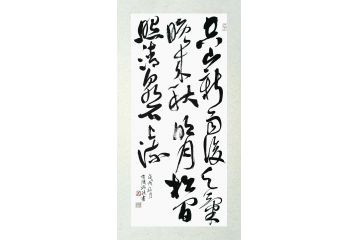 空山新雨後天氣
晚來秋明月松間
照清泉石上流